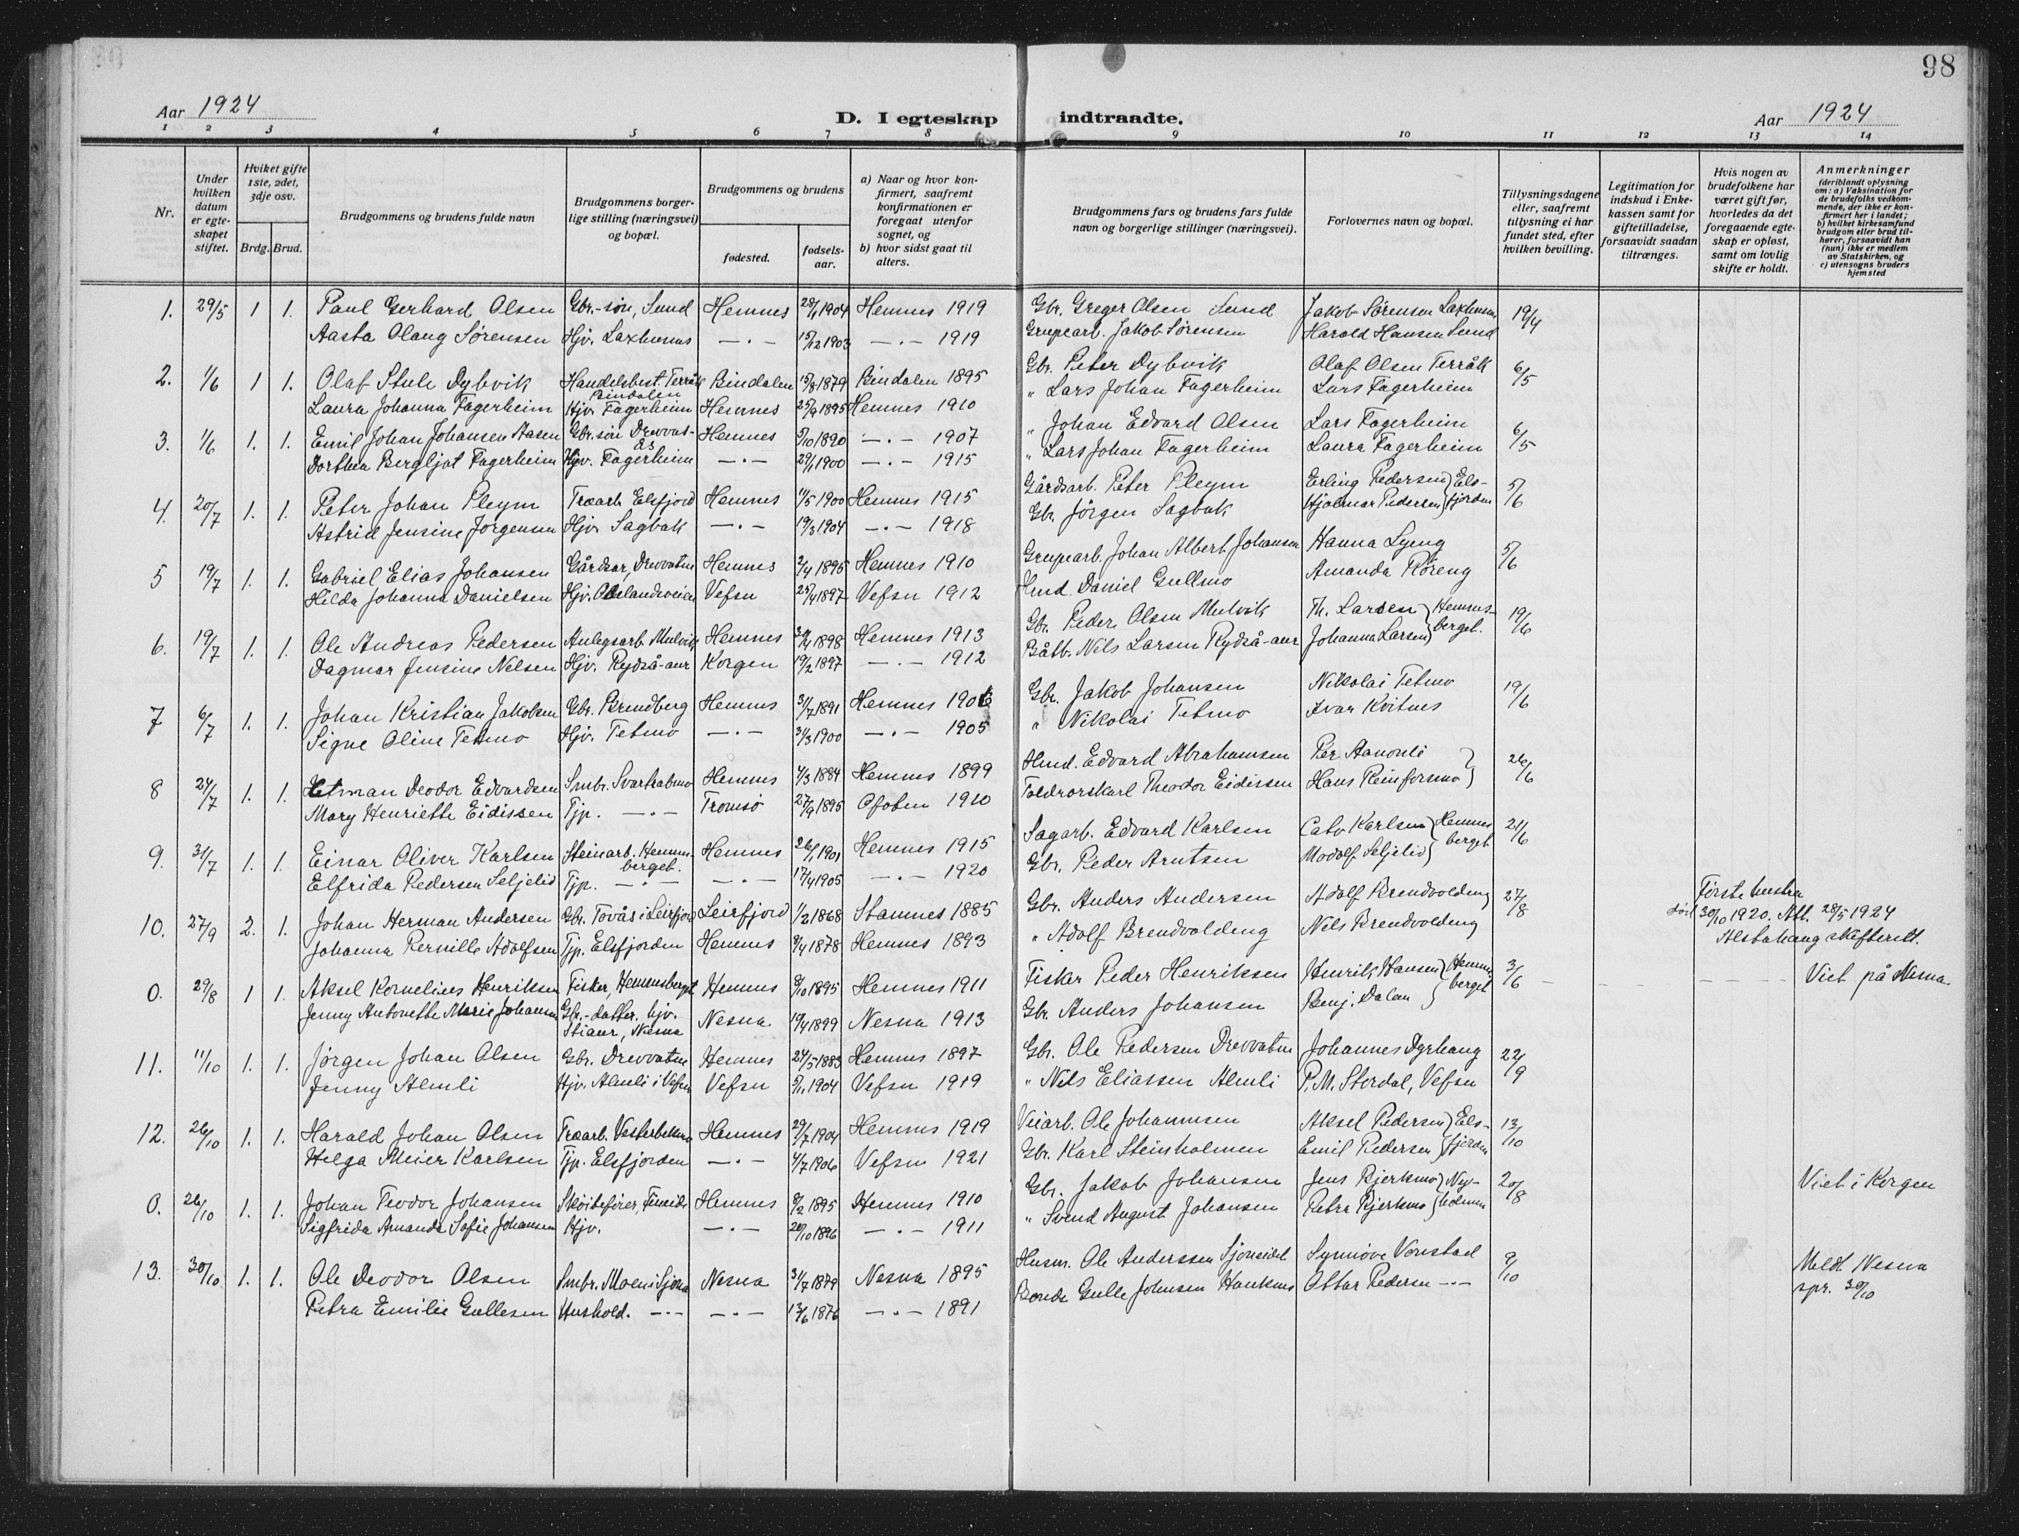 98
Aar 1924
D. I egteskap indtraadte.
Aar 1924
1 2 3 4 5 6 7 8 9 10 11 12 13 14
Nr.
Under hvilken datum er egteskapet stiftet.
Hviket gifte 1ste, 2det, 3dje osv.
Brdg. Brud.
Brudgommens og brudens fulde navn
Brudgommens borgerlige stilling (næringsvei) og bopæl.
Brudgommens og brudens
fødested.
fødselsaar.
a) Naar og hvor konfirmert, saafremt konfirmationen er foregaat utenfor sognet, og
b) hvor sidst gaat til alters.
Brudgommens fars og brudens fars fulde navn og borgerlige stillinger (næringsvei).
Forlovernes navn og bopæl.
Tillysningsdagene eller, saafremt tillysning ei har fundet sted, efter hvilken bevilling.
Legitimation for indskud i Enkekassen samt for giftetilladelse, forsaavidt saadan tiltrænges.
Hvis nogen av brudefolkene har været gift før, hvorledes da det foregaaende egteskap er opløst, samt om lovlig skifte er holdt.
Anmerkninger
(deriblandt oplysning om: a) Vaksination for de brudefolks vedkommende, der ikke er konfirmert her i landet; b) hvilket kirkesamfund brudgom eller brud tilhører, forsaavidt han (hun) ikke er medlem av Statskirken, og c) utensogns bruders hjemsted
1. 29/5 1 1. Paul Gerhard Olsen Gbr.-søn, Sund Hemnes 28/1 1904 Hemnes 1919 Gbr. Greger Olsen Sund Jakob Sørensen Laxhusnes 19/4
Aasta Olaug Sørensen Hjv. Laxhusnes —·— 15/12 1903 —·— 1919 Grupearb. Jakob Sørensen Harald Hansen Sund
2. 1/6 1 1. Olaf Stule Dybvik Handelsbest. Terråk Bindalen Bindalen 15/8 1879 Bindalen 1895 Gbr. Peter Dybvik Olaf Olsen Terråk 6/5
Laura Johanna Fagerheim Hjv. Fagerheim Hemnes 25/9 1895 Hemnes 1910 " Lars Johan Fagerheim Lars Fagerheim
3. 1/6 1. 1. Emil Johan Johansen Aasen Gbr. søn Drevvasås Hemnes 5/10 1890 —·— 1907 " Johan Edvard Olsen Lars Fagerheim 6/5
Dorthea Bergljot Fagerheim Hjv. Fagerheim —·— 29/1 1900 —·— 1915 " Lars Johan Fagerheim Laura Fagerheim
4. 20/7 1. 1. Peter Johan Pleym Træarb. Elsfjord Hemnes 11/5 1900 Hemnes 1915 Gårdsarb. Peter Pleym Erling Pedersen } Els- 5/6
Astrid Jensine Jørgensen Hjv. Sagbak —·— 19/3 1904 —·— 1918 Gbr. Jørgen Sagbak Hjalmar Pedersen } fjorden
5 19/7 1. 1. Gabriel Elias Johansen Gårdsar, Drevvatn Hemnes 2/4 1895 Hemnes 1910 Grupearb. Johan Albert Johansen Hanna Lyeng 5/6
Hilda Johanna Danielsen Hjv. Vefsn 25/4 1897 Vefsn 1912 Hmd. Daniel Gullmo Amanda Røreng
6. 19/7 1. 1. Ole Andreas Pedersen Anlegsarb. Mulvik Hemnes 1898 Hemnes 1913 Gbr. Peder Olsen Mulvik Th. Larsen } Hemnes- 19/6
Dagmar Jensine Nilsen Hjv. Rydså-aur Korgen 19/2 1897 —·— 1912 Båtb. Nils Larsen Rydså-aur Johanna Larsen } berget.
7 6/7 1. 1. Johan Kristian Jakobsen Gbr. Brendberg Hemnes 31/7 1891 Hemnes 1906 Gbr. Jakob Johansen Nikolai Tetmo 19/6
Signe Oline Tetmo Hjv. Tetmo —·— 31/3 1900 —·— 1905 " Nikolai Tetmo Ivar Kvitnes
8 24/7 1. 1. Hetman Deodor Edvardsen Smbr. Svartvabmo Hemnes 4/3 1884 Hemnes 1899 Hmd. Edvard Abrahamsen Per Aanonli } 26/6
Mary Henriette Eidissen Tjp. —·— Tromsø 27/9 1895 Ofoten 1910 Toldrorskarl Theodor Eidissen Hans Reinforsmo }
9. 31/7 1. 1. Einar Oliver Karlsen Steinarb. Hemnesberget. Hemnes 26/1 1901 Hemnes 1915 Sagarb. Edvard Karlsen Cato Karlsen } Hemnes 21/6
Elfrida Pedersen Seljelid Tjp. —·— —·— 17/4 1905 —·— 1920 Gbr. Peder Arntsen Modolf Seljelid } berget
10. 27/9 2. 1. Johan Herman Andersen Gbr. Tovås i Leirfjord Leirfjord 1/2 1868 Stamnes 1885 Gbr. Anders Andersen Adolf Brendvolding 27/8 Første hustru død 30/10 1920. Att. 28/5 1924 Alstahaug skifterett.
Johanna Pernille Adolfsen Tjp. Elsfjorden Hemnes 9/4 1878 Hemnes 1893 " Adolf Brendvolding Nils Brendvolding
0. 29/8 1 1. Aksel Kornelius Henriksen Fisker, Hemnesberget Hemnes 8/10 1895 Hemnes 1911 Fisker Peder Henriksen Henrik Hansen } Hemnes 3/6 Viet på Nesna.
Jenny Antonette Marie Johansen Gbr.-datter. hjv. Stiaur, Nesna Nesna. 19/4 1899 Nesna 1913 Gbr. Anders Johansen Benj. Dalan } berget
11. 11/10 1. 1. Jørgen Johan Olsen Gbr. Drevvatne Hemnes 24/5 1883 Hemnes 1897 Gbr. Ole Pedersen Drevvatn Johannes Dyrhaug 22/9
Jenny Almli Hjv. Almli i Vefsn Vefsn 5/1 1904 Vefsn 1919 " Nils Eliassen Almli P. M. Stordal, Vefsn
12. 26/10 1. 1. Harald Johan Olsen Træarb. Hemnes 29/7 1904 Hemnes 1919 Veiarb. Ole Johannesen Aksel Pedersen } Els- 13/10
Helga Meier Karlsen Tjp. Elsfjorden —·— 4/7 1906 Vefsn 1921 Gbr. Karl Steinholmen Emil Pedersen } fjorden
0. 26/10 1. 1. Johan Teodor Johansen Skøitefører, Hemnes 9/2 1895 Hemnes 1910 Gbr. Jakob Johansen Jens Bjerkmo } Ny- 20/8 Viet i Korgen
Sigfrida Amanda Sofie Johansen Hjv. —·— 20/10 1896 —·— 1911 " Svend August Johansen Petra Bjerkmo } holmen
13. 30/10 1. 1. Ole Deodor Olsen Smbr. Moen i Sjona Nesna 31/7 1879 Nesna 1895 Husm. Ole Anderssen Sjonseidet Synnøve Vonstad 9/10 Meldt Nesna spr. 30/10
Petra Emilie Gullesen Hushold. —·— —·— 13/6 1876 —·— 1891 Bonde Gulle Johnsen Haukenes Ottar Pedersen —·—